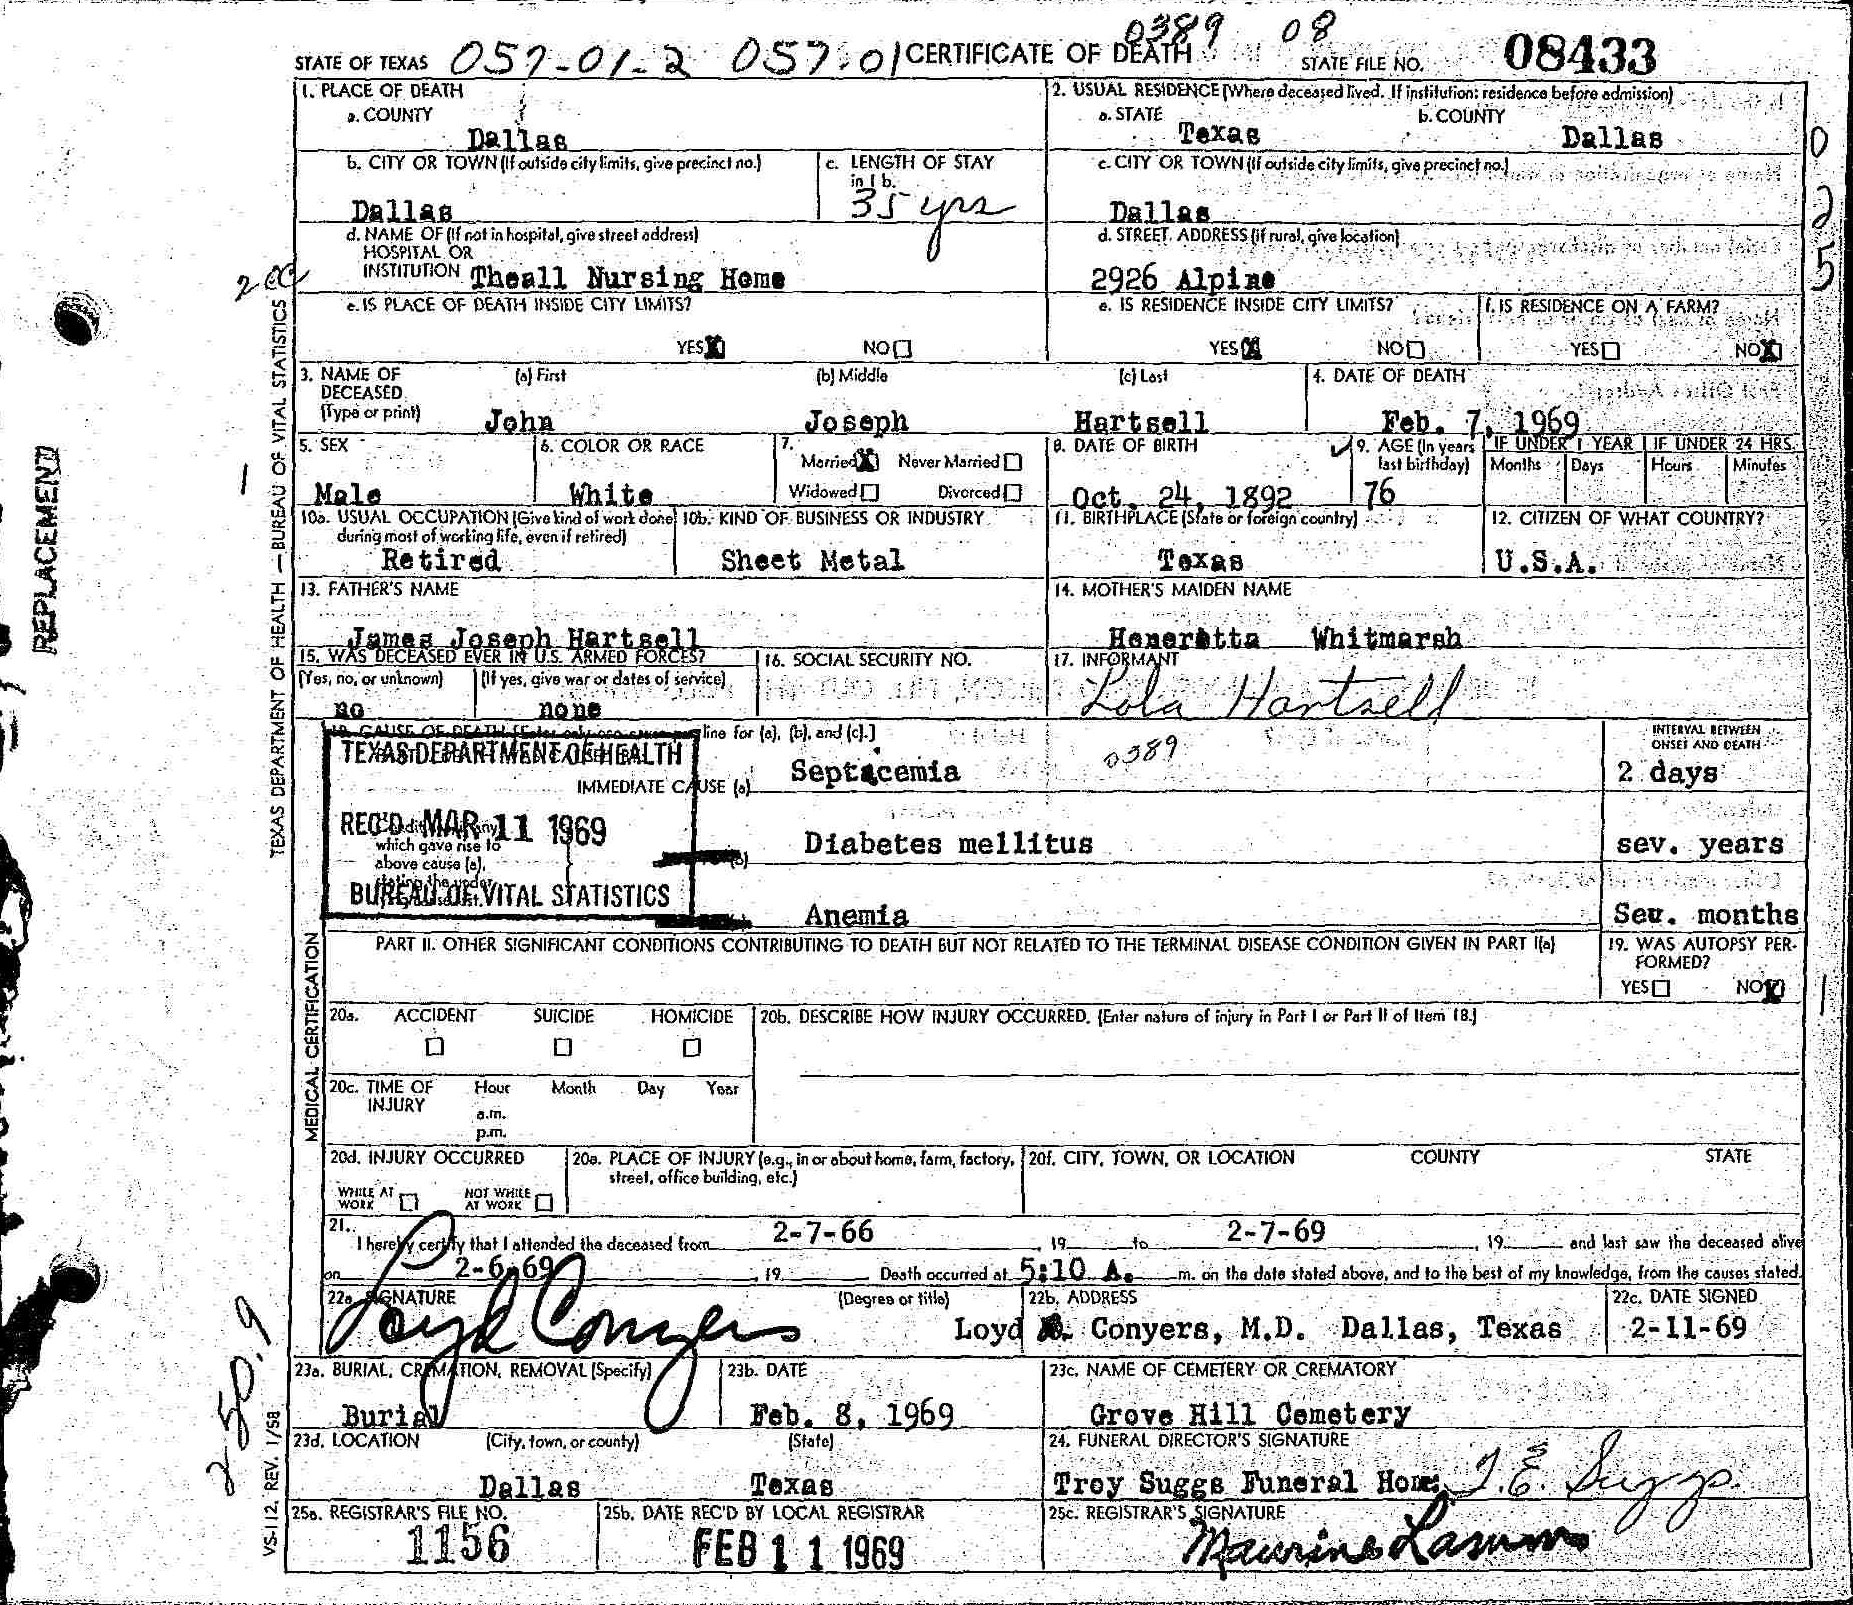 0389 08
STATE OF TEXAS 057-01-2 057-01 CERTIFICATE OF DEATH STATE FILE NO. 08433
1. PLACE OF DEATH
a. COUNTY
Dallas
2. USUAL RESIDENCE (Where deceased lived. If institution: residence before admission)
a. STATE b. COUNTY
Texas Dallas
b. CITY OR TOWN (If outside city limits, give precinct no.)
Dallas
c. LENGTH OF STAY
in 1 b.
35 yrs
c. CITY OR TOWN (If outside city limits, give precinct no.)
Dallas
0
2
5
d. NAME OF (If not in hospital, give street address)
HOSPITAL OR
INSTITUTION Theall Nursing Home
d. STREET ADDRESS (if rural, give location)
2926 Alpine
e. IS PLACE OF DEATH INSIDE CITY LIMITS?
YES X NO
e. IS RESIDENCE INSIDE CITY LIMITS?
YES X NO
f. IS RESIDENCE ON A FARM?
YES NO X
3. NAME OF
DECEASED
(Type or print)
(a) First (b) Middle (c) Last
John Joseph Hartsell
4. DATE OF DEATH
Feb. 7, 1969
5. SEX
Male
6. COLOR OR RACE
White
7.
Married X Never Married
Widowed Divorced
8. DATE OF BIRTH
Oct. 24, 1892
9. AGE (In years
last birthday)
76
IF UNDER 1 YEAR IF UNDER 24 HRS.
Months Days Hours Minutes
10a. USUAL OCCUPATION (Give kind of work done
during most of working life, even if retired)
Retired
10b. KIND OF BUSINESS OR INDUSTRY
Sheet Metal
11. BIRTHPLACE (State or foreign country)
Texas
12. CITIZEN OF WHAT COUNTRY?
U.S.A.
13. FATHER'S NAME
James Joseph Hartsell
14. MOTHER'S MAIDEN NAME
Heneretta Whitmarsh
15. WAS DECEASED EVER IN U.S. ARMED FORCES?
(Yes, no, or unknown) (If yes, give war or dates of service)
no none
16. SOCIAL SECURITY NO.
17. INFORMANT
Lola Hartsell
18. CAUSE OF DEATH [Enter only one cause per line for (a), (b), and (c).]
INTERVAL BETWEEN
ONSET AND DEATH
TEXAS DEPARTMENT OF HEALTH
REC'D MAR 11 1969
BUREAU OF VITAL STATISTICS
IMMEDIATE CAUSE (a) Septicemia 0389 2 days
which gave rise to
above cause (a),
stating the under-
(b) Diabetes mellitus sev. years
Anemia Sev. months
PART II. OTHER SIGNIFICANT CONDITIONS CONTRIBUTING TO DEATH BUT NOT RELATED TO THE TERMINAL DISEASE CONDITION GIVEN IN PART I(a)
19. WAS AUTOPSY PER-
FORMED?
YES NO X
20a. ACCIDENT SUICIDE HOMICIDE
20b. DESCRIBE HOW INJURY OCCURRED. (Enter nature of injury in Part I or Part II of Item 18.)
20c. TIME OF
INJURY
Hour Month Day Year
a.m.
p.m.
20d. INJURY OCCURRED
WHILE AT
WORK
NOT WHILE
AT WORK
20e. PLACE OF INJURY (e.g., in or about home, farm, factory,
street, office building, etc.)
20f. CITY, TOWN, OR LOCATION COUNTY STATE
21.
I hereby certify that I attended the deceased from 2-7-66, 19 to 2-7-69, 19 and last saw the deceased alive
on 2-6-69, 19 Death occurred at 5:10 A. m. on the date stated above, and to the best of my knowledge, from the causes stated.
22a. SIGNATURE (Degree or title)
Loyd Conyers
22b. ADDRESS
Loyd Conyers, M.D. Dallas, Texas
22c. DATE SIGNED
2-11-69
23a. BURIAL, CREMATION, REMOVAL (Specify)
Burial
23b. DATE
Feb. 8, 1969
23c. NAME OF CEMETERY OR CREMATORY
Grove Hill Cemetery
23d. LOCATION (City, town, or county) (State)
Dallas Texas
24. FUNERAL DIRECTOR'S SIGNATURE
Troy Suggs Funeral Home T. E. Suggs
25a. REGISTRAR'S FILE NO.
1156
25b. DATE REC'D BY LOCAL REGISTRAR
FEB 11 1969
25c. REGISTRAR'S SIGNATURE
Maurine
REPLACEMENT
TEXAS DEPARTMENT OF HEALTH — BUREAU OF VITAL STATISTICS
MEDICAL CERTIFICATION
VS-112, REV. 1/58
250.9
1